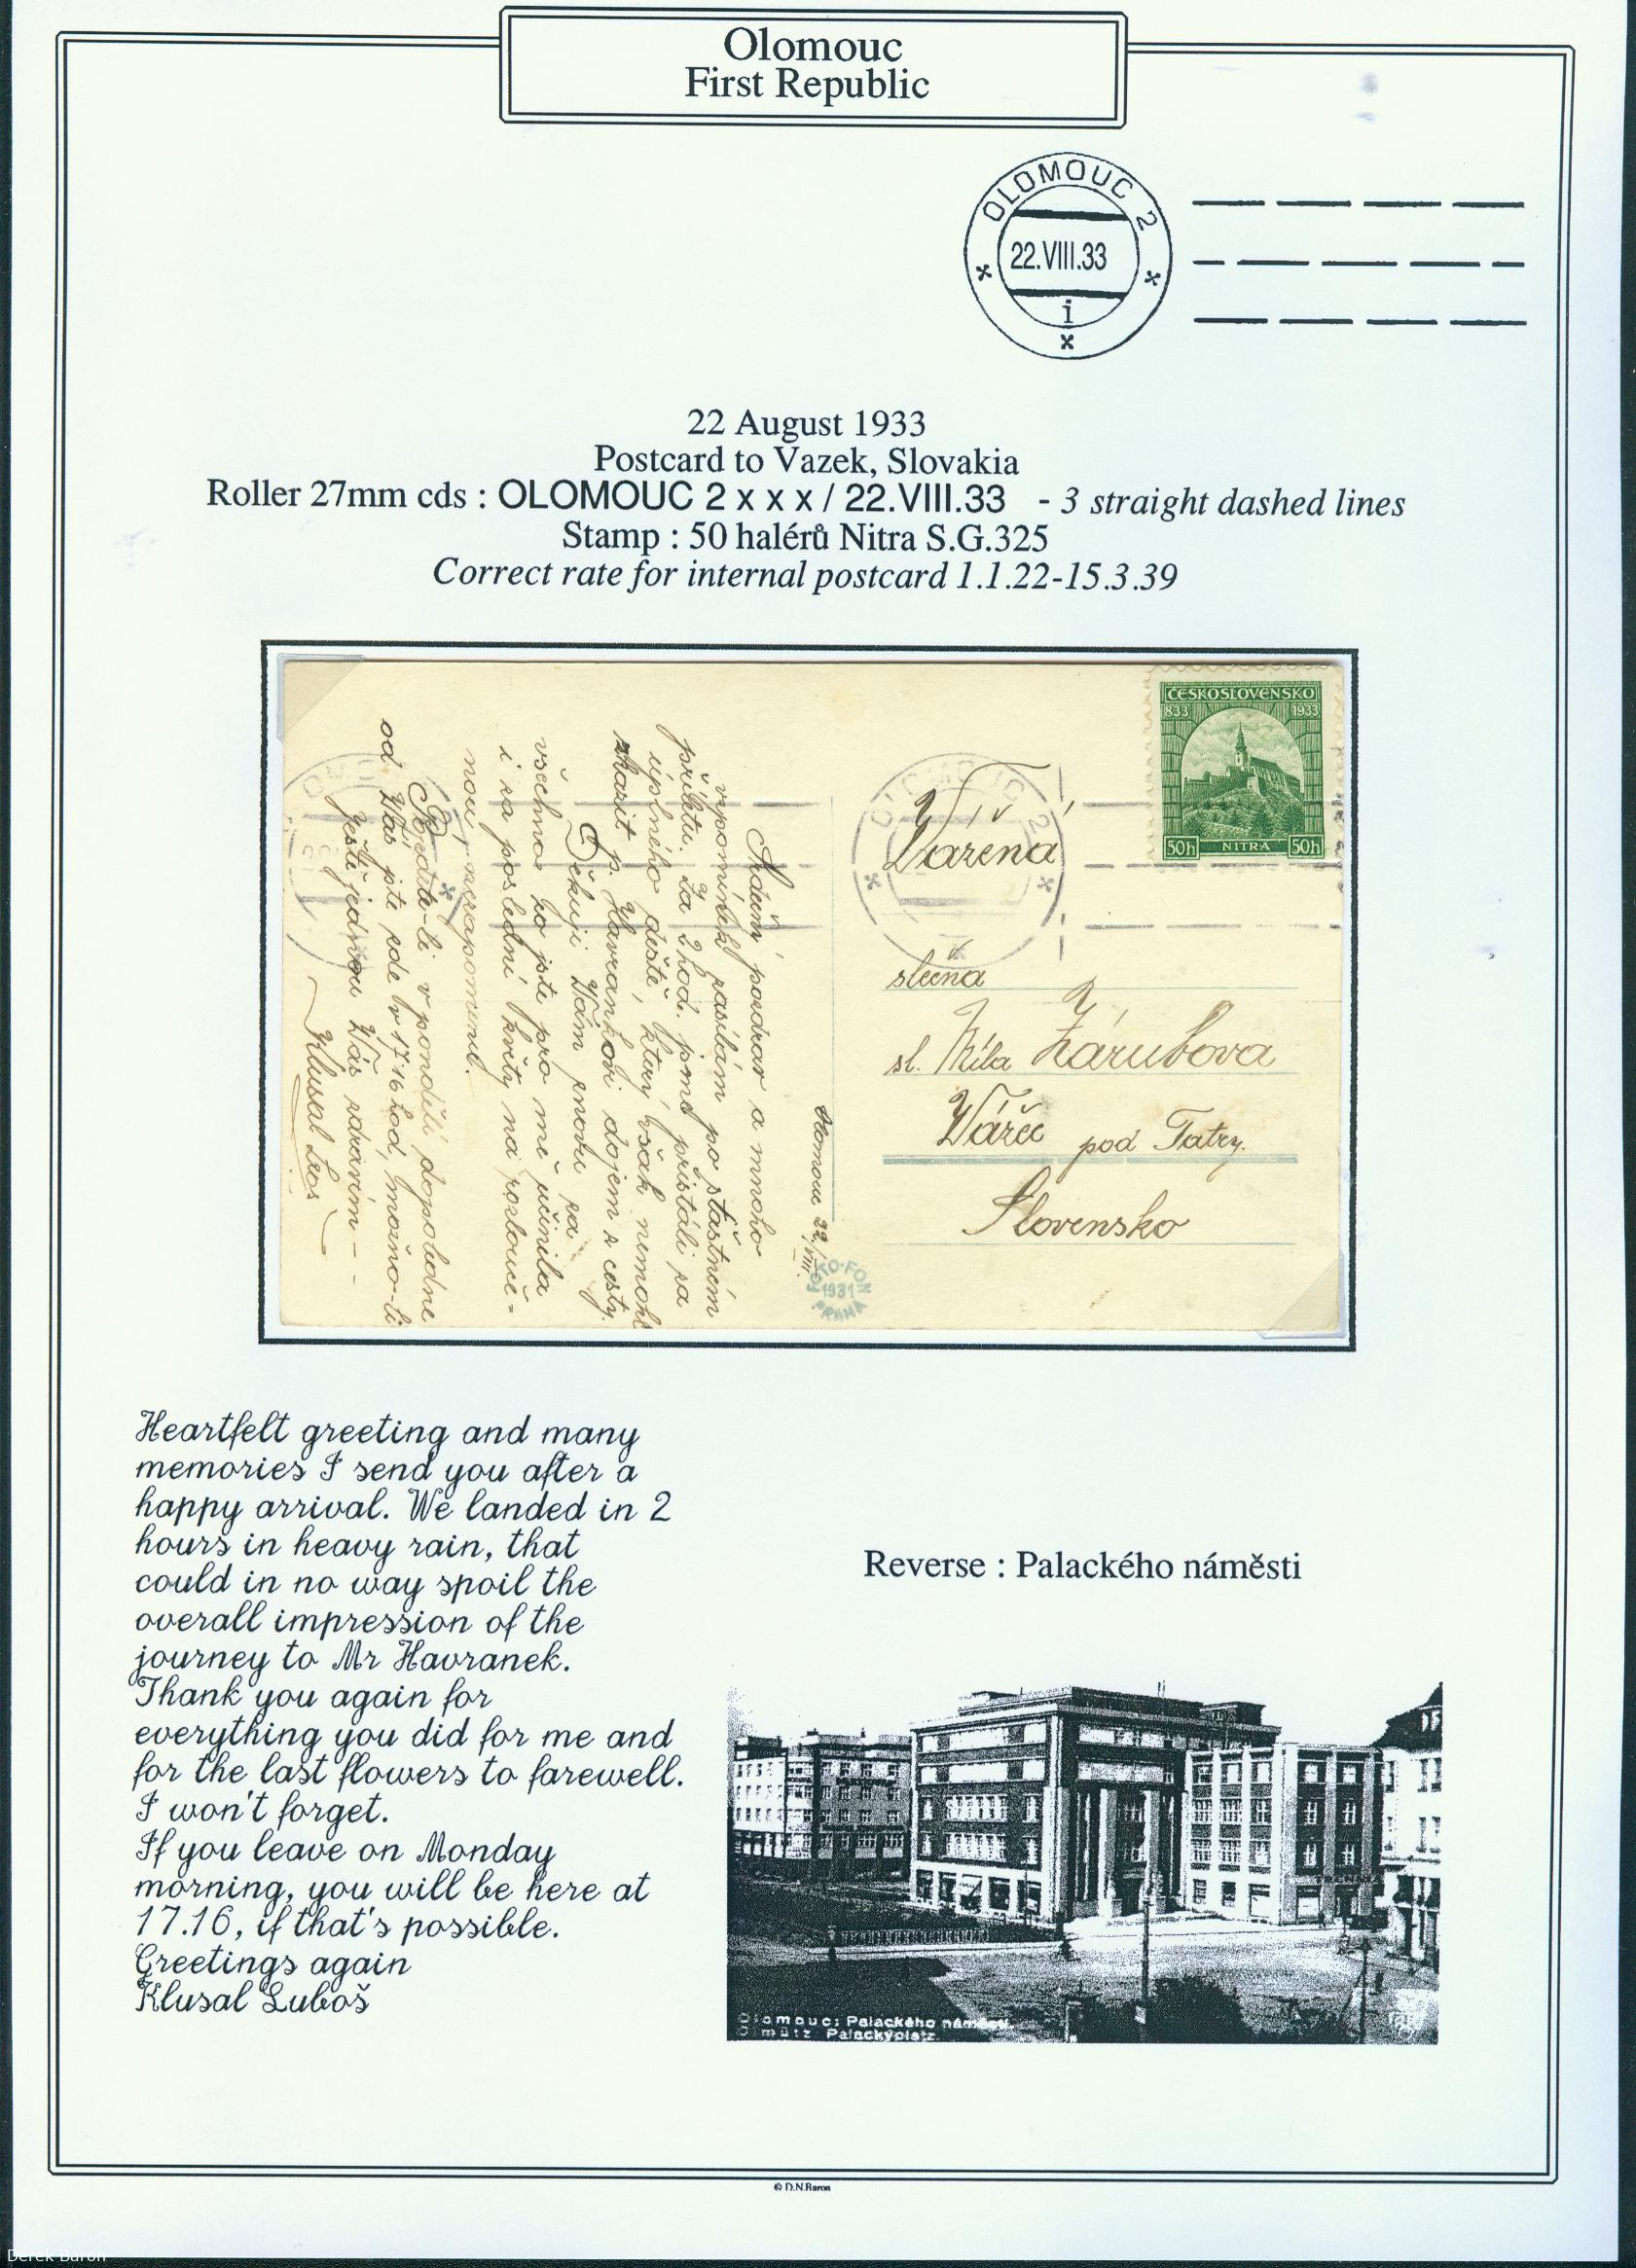 Olomouc
First Republic
OLOMOUC 2
22.VIII.33
i
x x x
22 August 1933
Postcard to Vazek, Slovakia
Roller 27mm cds : OLOMOUC 2 x x x / 22.VIII.33 - 3 straight dashed lines
Stamp : 50 halérů Nitra S.G.325
Correct rate for internal postcard 1.1.22-15.3.39
ČESKOSLOVENSKO
833 1933
50h NITRA 50h
OLOMOUC 2
Vážená
slečna
sl. Míla Zárubova
Vážec pod Tatry.
Slovensko
Olomouc 22/VIII.
FOTO-FON
1931
PRAHA
Srdečný pozdrav a mnoho
vzpomínek zasílám po šťastném
příletu. Za 2 hod. jsme přistáli za
úplného deště, který však nemohl
zkazit p. Havrankovi dojem z cesty.
Děkuji Vám znovu za
všechno co jste pro mě učinila
i za poslední květy na rozlouče-
nou, nezapomenu.
v pondělí dopoledne
od Vás jste zde v 17·16 hod, možno-li
Ještě jednou Vás zdravím - -
Klusal Luboš
Heartfelt greeting and many
memories I send you after a
happy arrival. We landed in 2
hours in heavy rain, that
could in no way spoil the
overall impression of the
journey to Mr Havranek.
Thank you again for
everything you did for me and
for the last flowers to farewell.
I won't forget.
If you leave on Monday
morning, you will be here at
17.16, if that's possible.
Greetings again
Klusal Luboš
Reverse : Palackého náměsti
Olomouc: Palackého náměstí.
Olmütz: Palackyplatz
© D.N.Baron
Derek Baron